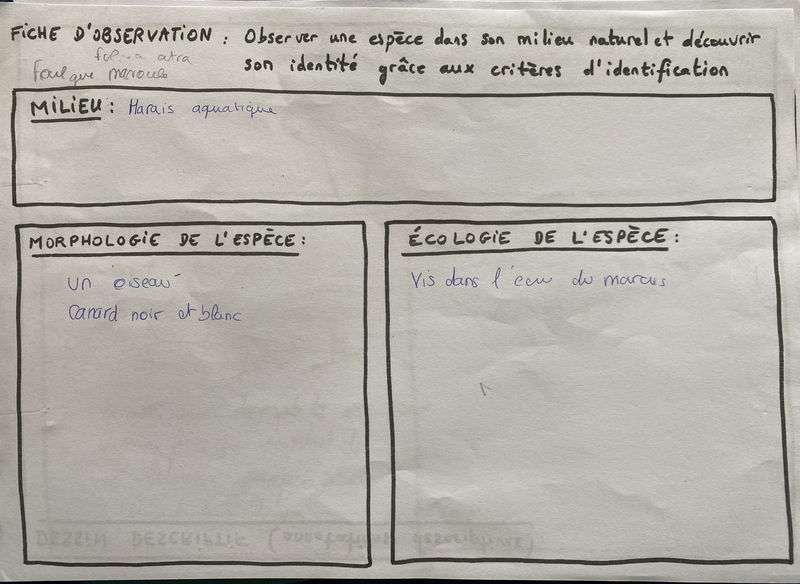 FICHE D'OBSERVATION : Observer une espèce dans son milieu naturel et découvrir
son identité grâce aux critères d'identification
atra
Foulque macroule
MILIEU : Marais aquatique
MORPHOLOGIE DE L'ESPÈCE :
un oiseau
Canard noir et blanc
ÉCOLOGIE DE L'ESPÈCE :
Vis dans l'eau du marais
DESSIN DESCRIPTIF (annotations descriptives)